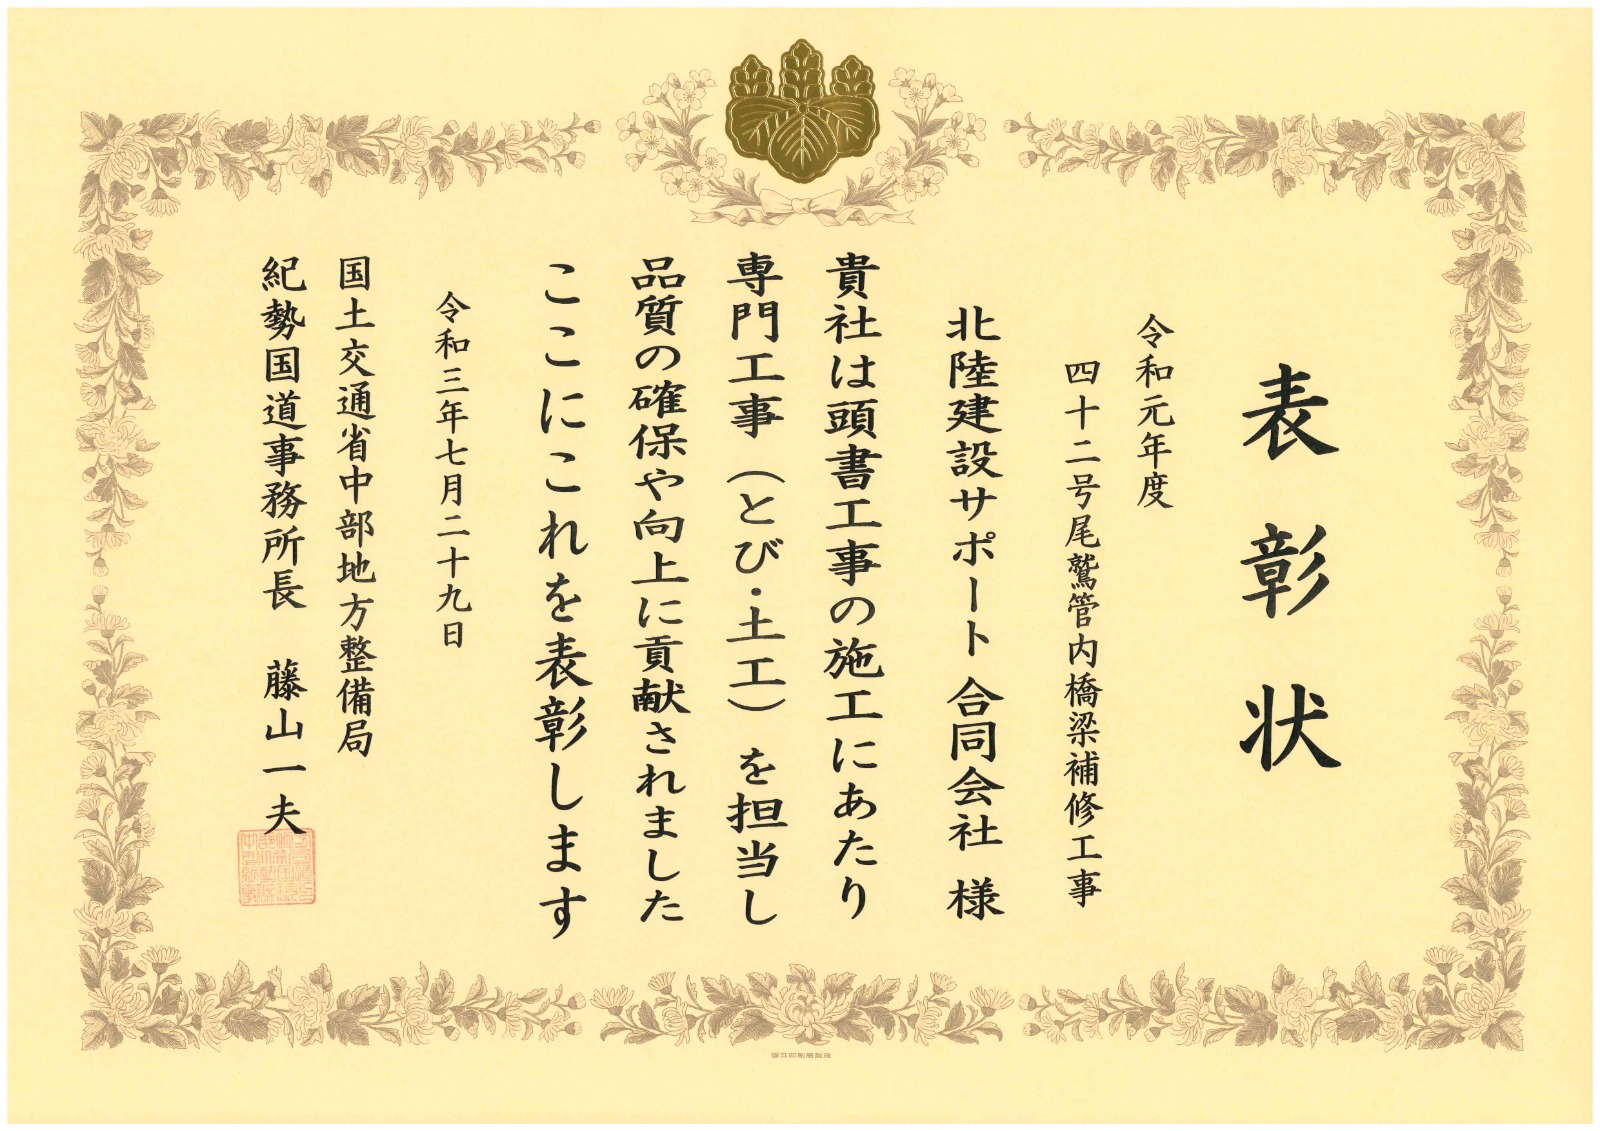 表彰状
令和元年度
四十二号尾鷲管内橋梁補修工事
北陸建設サポート合同会社 様
貴社は頭書工事の施工にあたり
専門工事（とび・土工）を担当し
品質の確保や向上に貢献されました
ここにこれを表彰します
令和三年七月二十九日
国土交通省中部地方整備局
紀勢国道事務所長 藤山一夫
国立印刷局製造